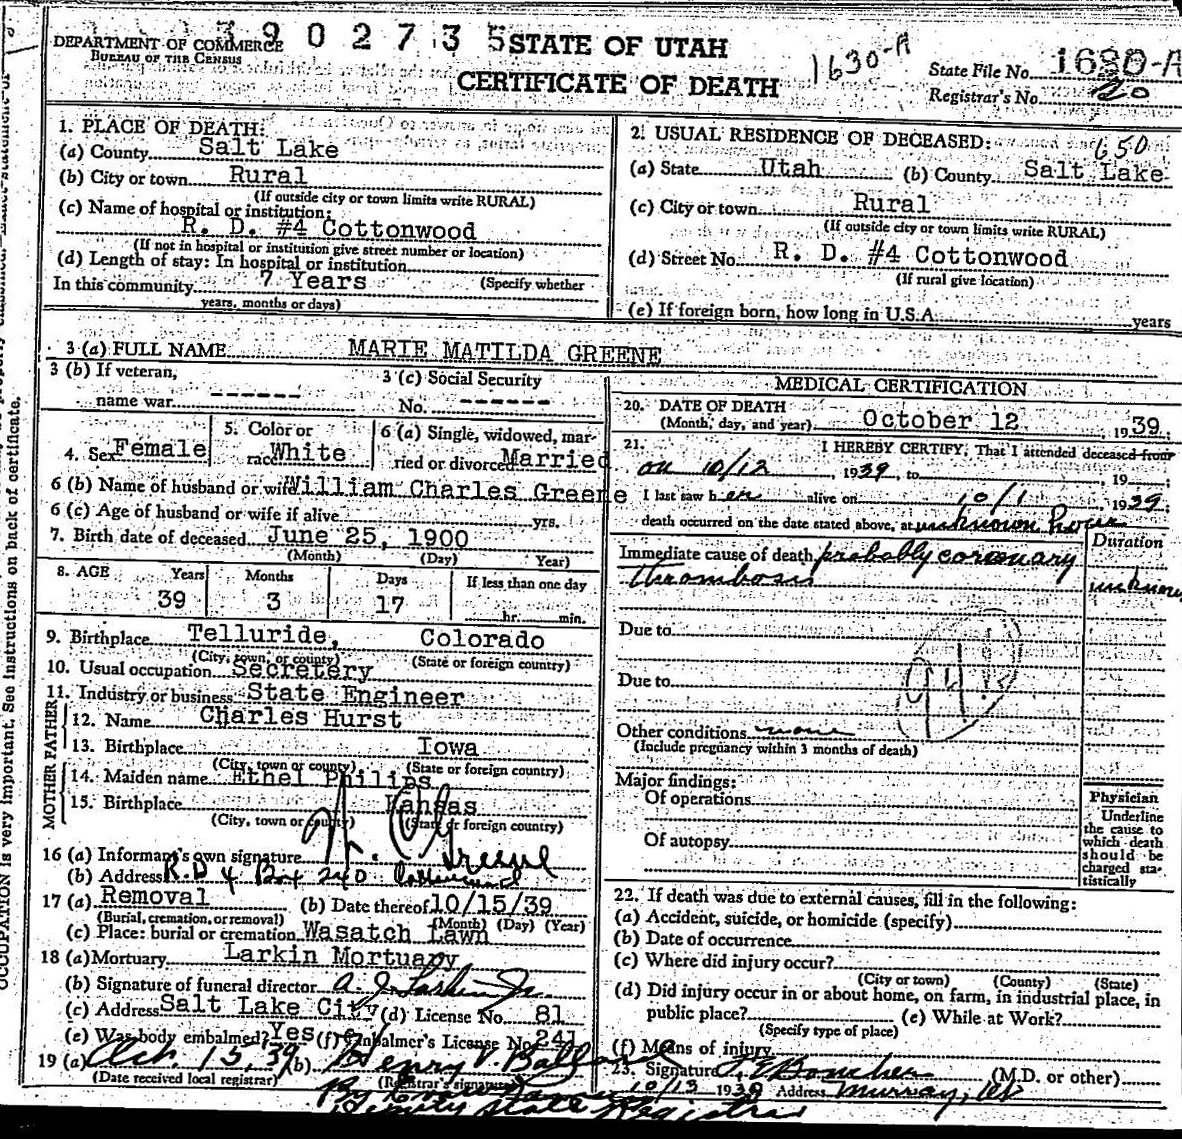 390273 5
DEPARTMENT OF COMMERCE
BUREAU OF THE CENSUS
STATE OF UTAH
CERTIFICATE OF DEATH
1630-A
State File No. 1630-A
Registrar's No. 20
1. PLACE OF DEATH:
(a) County Salt Lake
(b) City or town Rural
(If outside city or town limits write RURAL)
(c) Name of hospital or institution:
R. D. #4 Cottonwood
(If not in hospital or institution give street number or location)
(d) Length of stay: In hospital or institution
In this community 7 Years (Specify whether
years, months or days)
2. USUAL RESIDENCE OF DECEASED: 650
(a) State Utah (b) County Salt Lake
(c) City or town Rural
(If outside city or town limits write RURAL)
(d) Street No. R. D. #4 Cottonwood
(If rural give location)
(e) If foreign born, how long in U.S.A. years
3 (a) FULL NAME MARIE MATILDA GREENE
3 (b) If veteran,
name war ------
3 (c) Social Security
No. ------
4. Sex Female
5. Color or
race White
6 (a) Single, widowed, mar-
ried or divorced Married
6 (b) Name of husband or wife William Charles Greene
6 (c) Age of husband or wife if alive yrs.
7. Birth date of deceased June 25, 1900
(Month) (Day) Year)
8. AGE Years Months Days If less than one day
39 3 17 hr. min.
9. Birthplace Telluride, Colorado
(City, town, or county) (State or foreign country)
10. Usual occupation Secretery
11. Industry or business State Engineer
FATHER
12. Name Charles Hurst
13. Birthplace Iowa
(City, town or county) (State or foreign country)
MOTHER
14. Maiden name Ethel Philips
15. Birthplace Kansas
(City, town or county) (State or foreign country)
16 (a) Informant's own signature W. C. Greene
(b) Address R.D 4 Box 240 Cottonwood
17 (a) Removal (b) Date thereof 10/15/39
(Burial, cremation, or removal) (Month) (Day) (Year)
(c) Place: burial or cremation Wasatch Lawn
18 (a) Mortuary Larkin Mortuary
(b) Signature of funeral director A. J. Larkin Jr.
(c) Address Salt Lake City (d) License No. 81
(e) Was body embalmed? Yes (f) Embalmer's License No. 241
19 (a) Oct. 15, 39 (b) Henry V.
(Date received local registrar) (Registrar's signature)
By
Deputy State Registrar
MEDICAL CERTIFICATION
20. DATE OF DEATH
(Month, day, and year) October 12, 1939.
21. I HEREBY CERTIFY, That I attended deceased from
on 10/12, 1939, to, 19;
I last saw her alive on 10/1, 1939;
death occurred on the date stated above, at unknown hour
Duration
Immediate cause of death probably coronary
thrombosis unknown
Due to
Due to
Other conditions none
(Include pregnancy within 3 months of death)
Major findings:
Of operations
Of autopsy
Physician
Underline
the cause to
which death
should be
charged sta-
tistically
22. If death was due to external causes, fill in the following:
(a) Accident, suicide, or homicide (specify)
(b) Date of occurrence
(c) Where did injury occur?
(City or town) (County) (State)
(d) Did injury occur in or about home, on farm, in industrial place, in
public place? (e) While at Work?
(Specify type of place)
(f) Means of injury
23. Signature (M.D. or other)
10/13 1939 Address Murray, Ut
OCCUPATION is very important. See instructions on back of certificate.